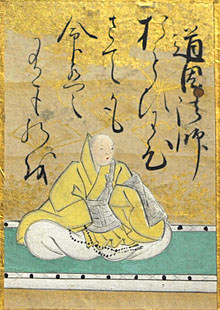 道因法師
おもひわひ
さても
命はある
ものを